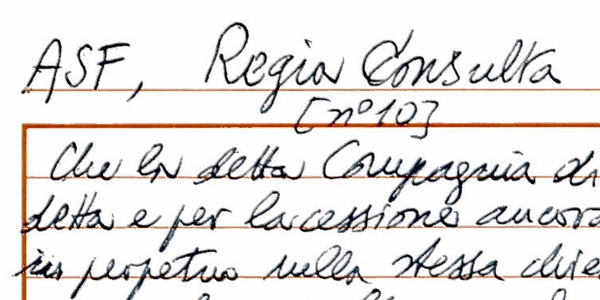 ASF, Regia Consulta
[n° 10]
Che la detta Compagnia di
detta e per la cessione ancora
in perpetuo nella stessa